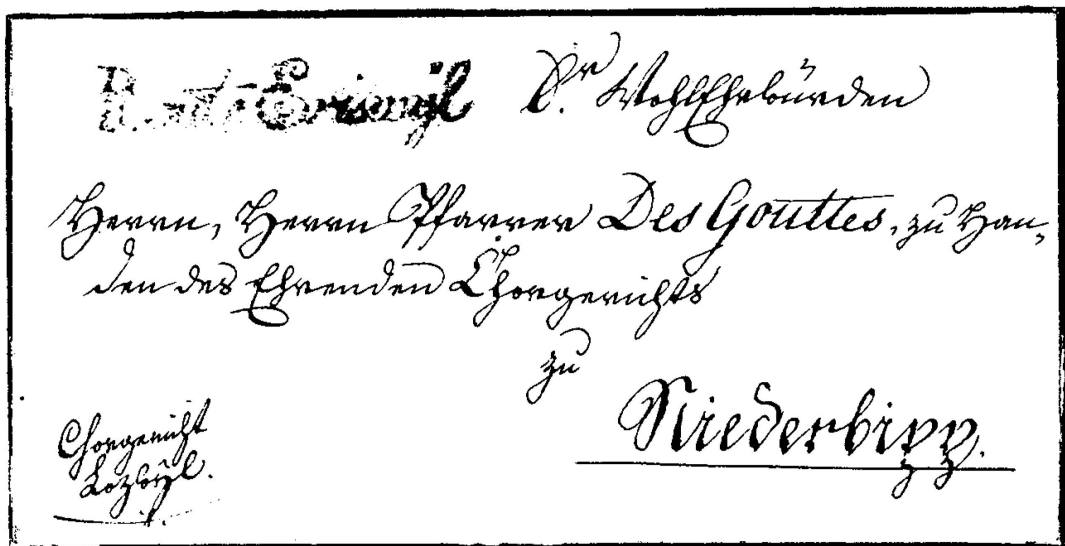 Eriswyl Sr. WohlEhrwürden
Herrn, Herrn Pfarrer Des Gouttes, zu Han-
den des Ehrenden Chorgerichts
zu
Niederbipp.
Chorgericht
Lozwÿl.